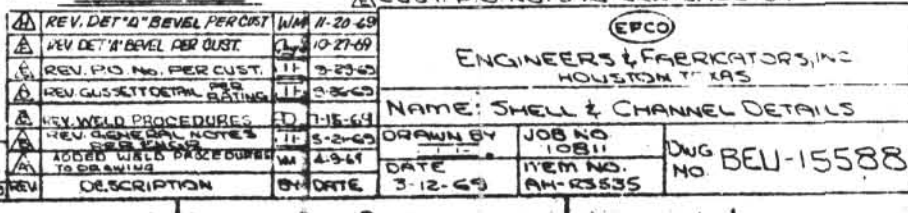 REV. DET "D" BEVEL PER CUST WM 11-20-69
REV DET "A" BEVEL PER CUST. 10-27-69
REV. P.O. No. PER CUST.
REV. GUSSETT DETAIL PER RATING
REV. WELD PROCEDURES
REV. GENERAL NOTES PER ENGR 5-2-69
ADDED WELD PROCEDURES TO DRAWING WM 4-9-69
REV DESCRIPTION BY DATE
EFCO
ENGINEERS & FABRICATORS, INC
HOUSTON TEXAS
NAME: SHELL & CHANNEL DETAILS
DRAWN BY
DATE
3-12-69
JOB NO
10811
ITEM NO.
AH-R3535
DWG NO. BEU-15588